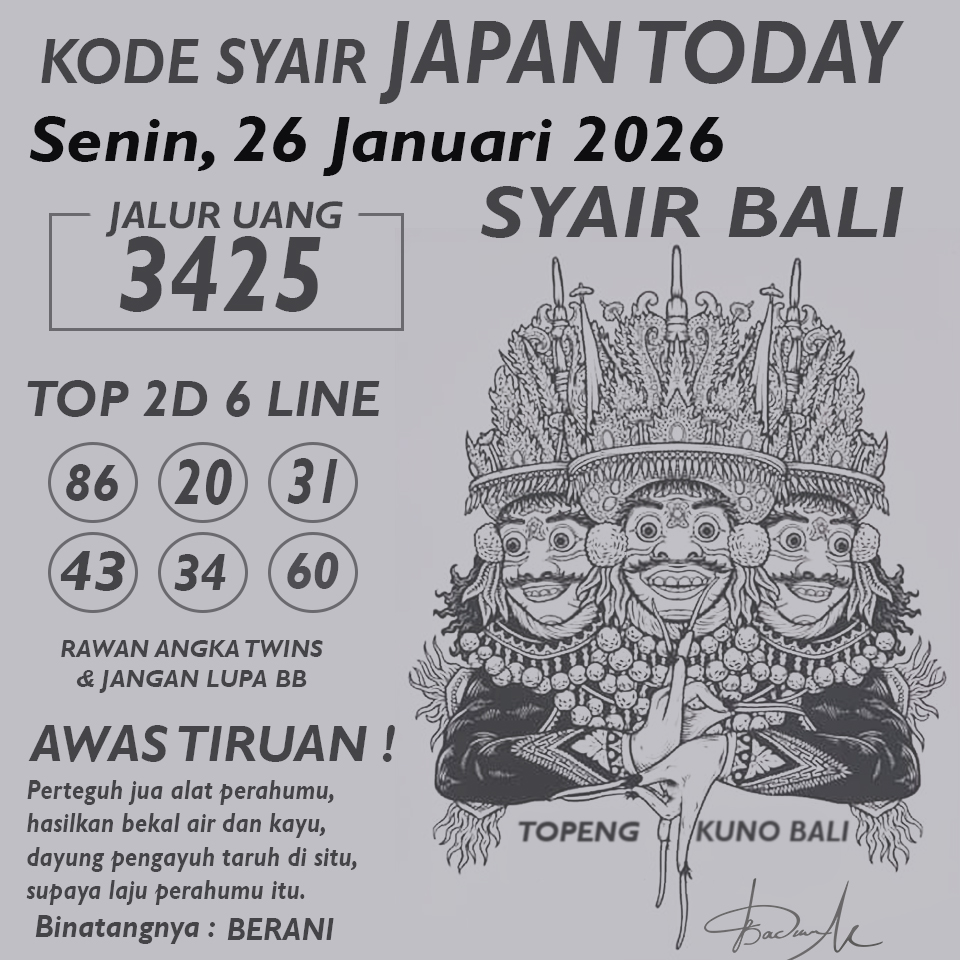 KODE SYAIR JAPAN TODAY
Senin, 26 Januari 2026
SYAIR BALI
JALUR UANG
3425
TOP 2D 6 LINE
86 20 31
43 34 60
RAWAN ANGKA TWINS
& JANGAN LUPA BB
AWAS TIRUAN !
Perteguh jua alat perahumu,
hasilkan bekal air dan kayu,
dayung pengayuh taruh di situ,
supaya laju perahumu itu.
Binatangnya : BERANI
TOPENG KUNO BALI